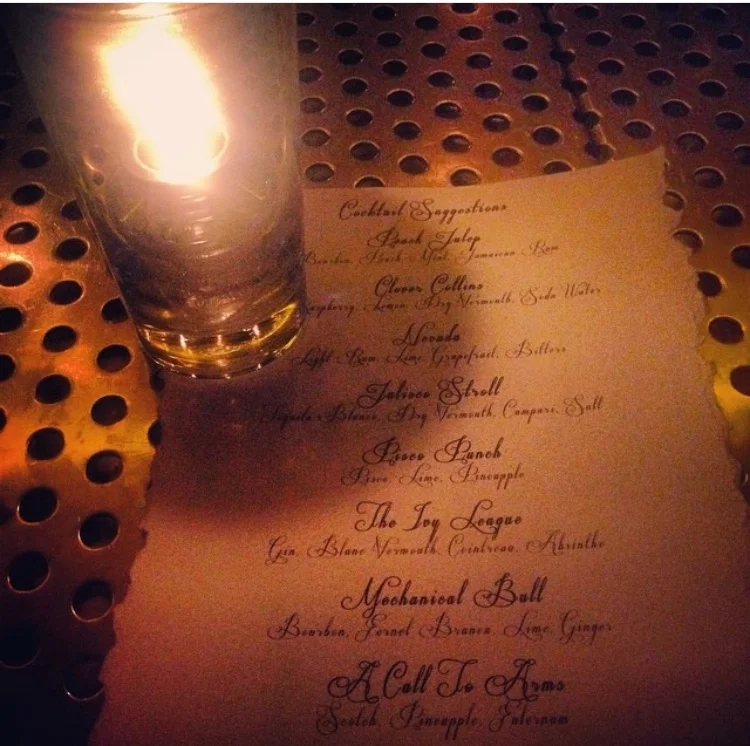 Cocktail Suggestions
Peach Julep
Bourbon, Peach, Mint, Jamaican Rum
Clover Collins
Raspberry, Lemon, Dry Vermouth, Soda Water
Nevada
Light Rum, Lime, Grapefruit, Bitters
Jalisco Stroll
Tequila Blanco, Dry Vermouth, Campari, Salt
Pisco Punch
Pisco, Lime, Pineapple
The Ivy League
Gin, Blanc Vermouth, Cointreau, Absinthe
Mechanical Bull
Bourbon, Fernet Branca, Lime, Ginger
A Call To Arms
Scotch, Pineapple, Falernum